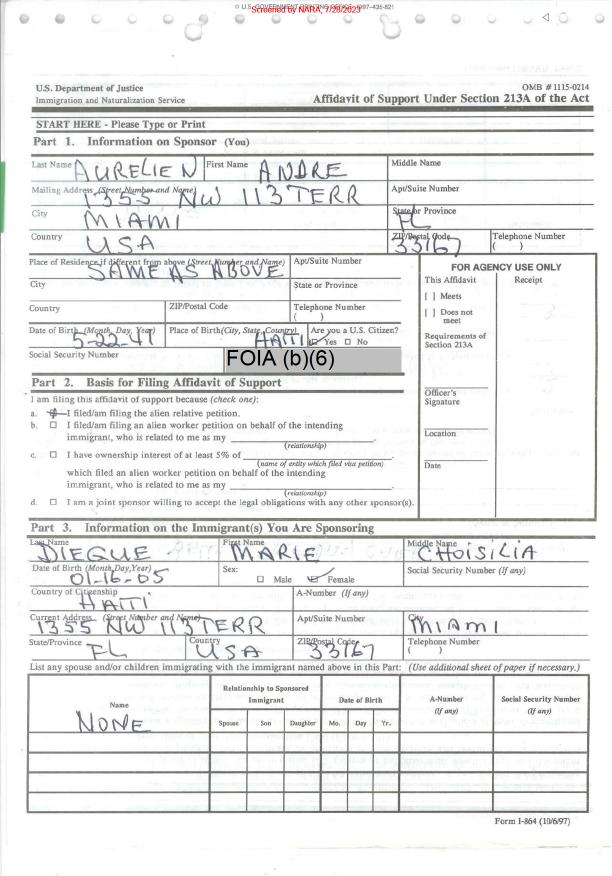 © U.S. GOVERNMENT PRINTING OFFICE: 1997-435-821
Screened by NARA, 7/28/2023
U.S. Department of Justice
Immigration and Naturalization Service
OMB #1115-0214
Affidavit of Support Under Section 213A of the Act
START HERE - Please Type or Print
Part 1. Information on Sponsor (You)
Last Name AURELIEN First Name ANDRE Middle Name
Mailing Address (Street Number and Name) 1355 NW 113 TERR Apt/Suite Number
City MIAMI State or Province FL
Country USA ZIP/Postal Code 33167 Telephone Number ( )
Place of Residence if different from above (Street Number and Name) SAME AS ABOVE Apt/Suite Number
City State or Province
Country ZIP/Postal Code Telephone Number ( )
Date of Birth (Month, Day, Year) 5-22-41 Place of Birth (City, State, Country) HAITI Are you a U.S. Citizen? Yes No
Social Security Number FOIA (b)(6)
FOR AGENCY USE ONLY
This Affidavit Receipt
[ ] Meets
[ ] Does not meet
Requirements of Section 213A
Officer's Signature
Location
Date
Part 2. Basis for Filing Affidavit of Support
I am filing this affidavit of support because (check one):
a. I filed/am filing the alien relative petition.
b. ☐ I filed/am filing an alien worker petition on behalf of the intending
immigrant, who is related to me as my
(relationship)
c. ☐ I have ownership interest of at least 5% of
(name of entity which filed visa petition)
which filed an alien worker petition on behalf of the intending
immigrant, who is related to me as my
(relationship)
d. ☐ I am a joint sponsor willing to accept the legal obligations with any other sponsor(s).
Part 3. Information on the Immigrant(s) You Are Sponsoring
Last Name DIEGUE First Name MARIE Middle Name CHOISILIA
Date of Birth (Month,Day,Year) 01-16-05 Sex: ☐ Male Female Social Security Number (If any)
Country of Citizenship HAITI A-Number (If any)
Current Address (Street Number and Name) 1355 NW 113 TERR Apt/Suite Number City MIAMI
State/Province FL Country USA ZIP/Postal Code 33167 Telephone Number ( )
List any spouse and/or children immigrating with the immigrant named above in this Part: (Use additional sheet of paper if necessary.)
Name Relationship to Sponsored Immigrant Date of Birth A-Number (If any) Social Security Number (If any)
Spouse Son Daughter Mo. Day Yr.
NONE
Form I-864 (10/6/97)